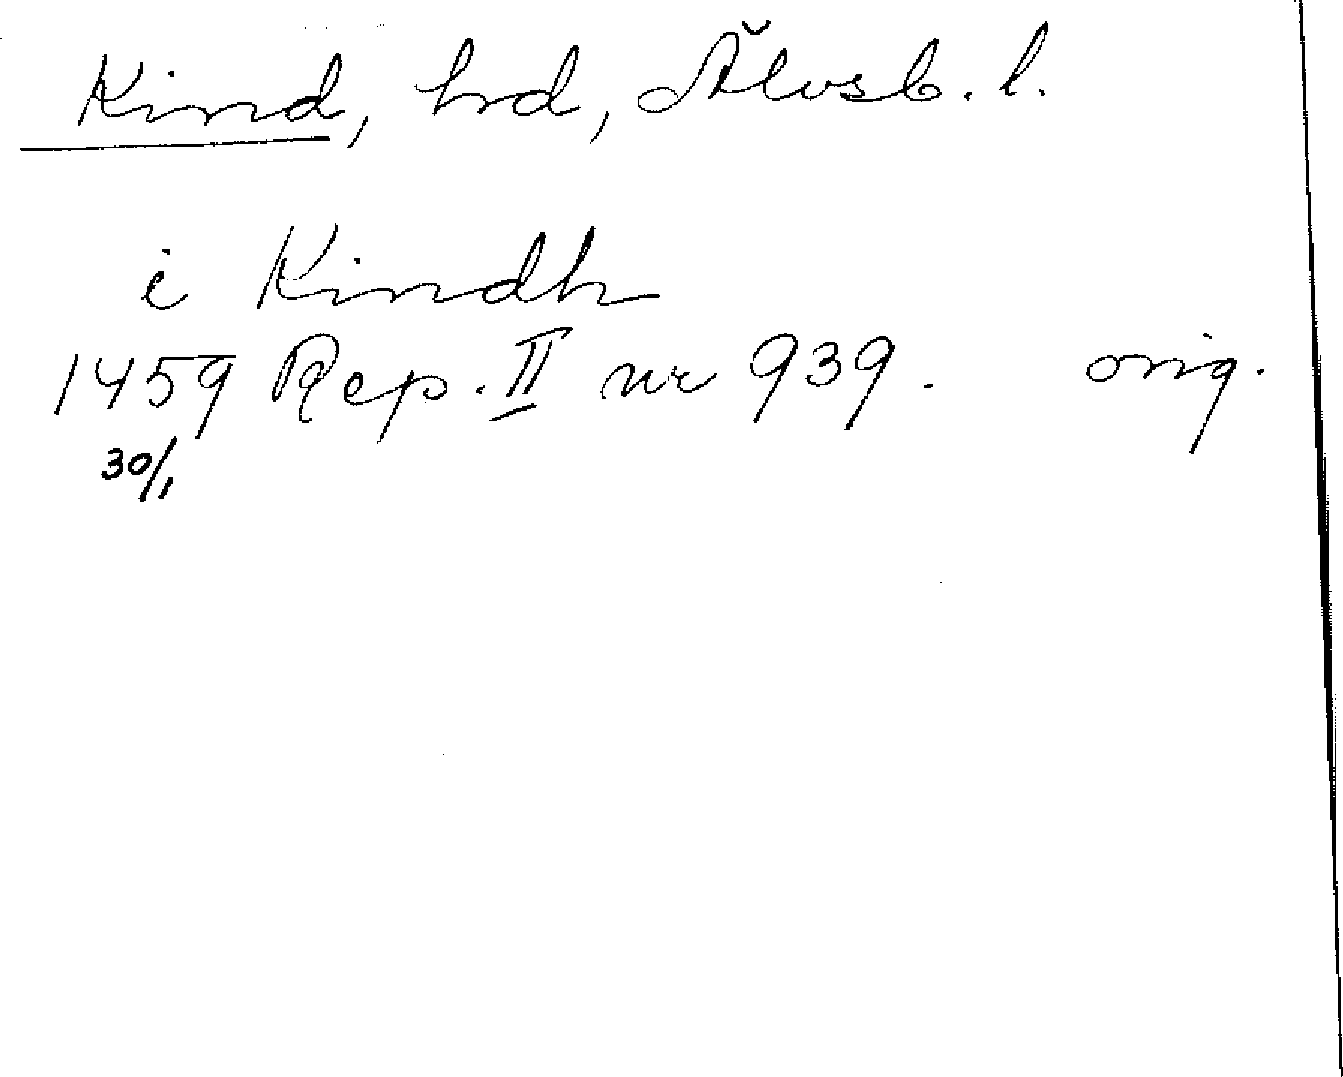 Kind, hd, Älvsb. l.
i Kindh
1459 Rep. II nr 939. orig.
30/1